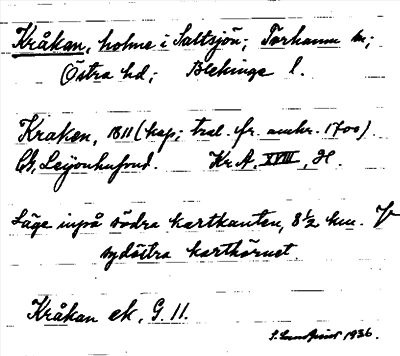 Kråkan, holme i Saltsjön; Torhamn sn;
Östra hd; Blekinge l.
Kraken, 1811 (kop; trol. fr. omkr. 1700).
C.G. Leijonhufvud. Kr. A. XVIII, H.
Läge inpå södra kartkanten, 8½ km. fr
sydöstra karthörnet.
Kråkan ek. G. 11.
S. Lundquist 1936.